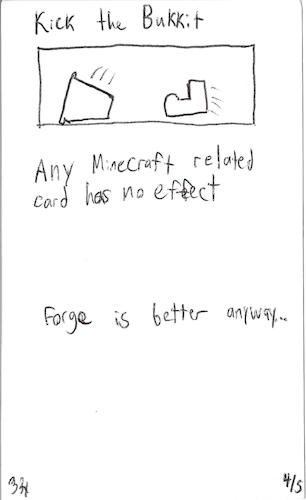 Kick the Bukkit
Any Minecraft related
card has no effect
Forge is better anyway...
4/5